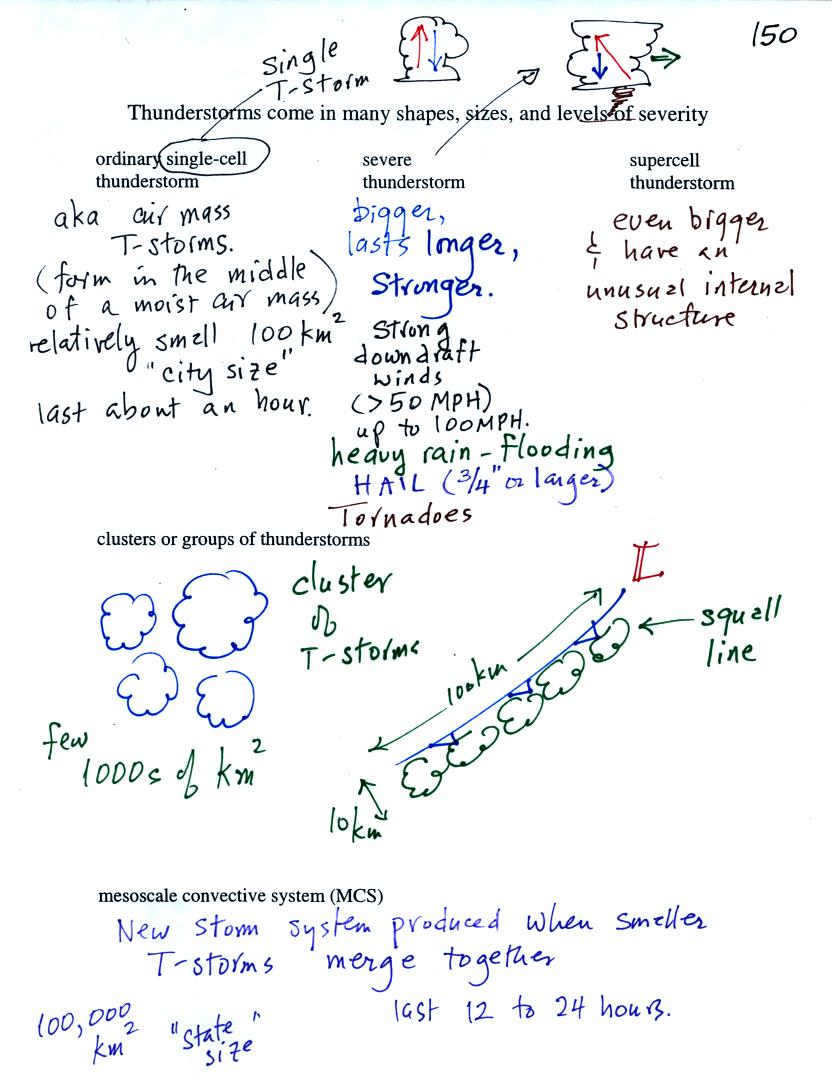 150
Single
T-Storm
Thunderstorms come in many shapes, sizes, and levels of severity
ordinary single-cell
thunderstorm
aka air mass
T-storms.
(form in the middle
of a moist air mass)
relatively small 100 km²
"city size"
last about an hour.
severe
thunderstorm
bigger,
lasts longer,
Stronger.
Strong
downdraft
winds
(>50 MPH)
up to 100 MPH.
heavy rain - flooding
HAIL (3/4" or larger)
Tornadoes
supercell
thunderstorm
even bigger
& have an
unusual internal
structure
clusters or groups of thunderstorms
cluster
of
T-storms
few
1000s of km²
L
squall
line
100km
10km
mesoscale convective system (MCS)
New storm system produced when smaller
T-storms merge together
last 12 to 24 hours.
100,000
km²
"state
size"